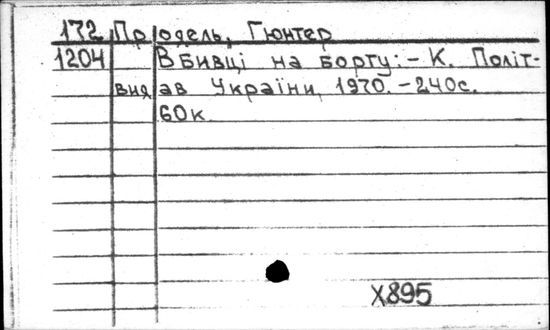 172 Продель, Гюнтер
1204 Вбивці на борту:- К. Політ-
вид ав України, 1970. - 240с.
60к.
X895